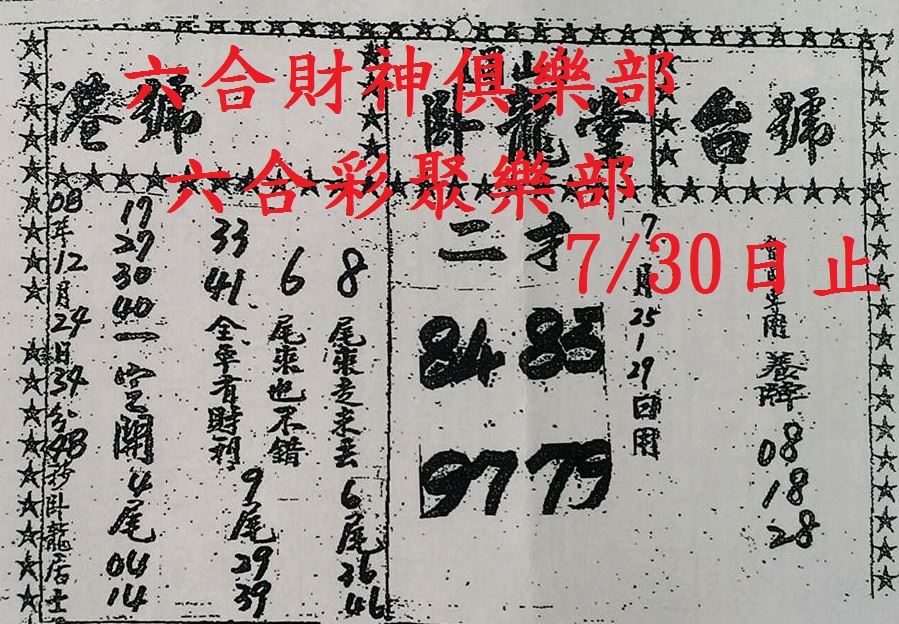 六合財神俱樂部
六合彩聚樂部
7/30日止
台號
臥龍堂
港號
養牌
08
18
28
7月25-29回用
二才
84 83
97 79
8尾來走來去
6尾
36
46
6尾來也不錯
33
41
全年有財利
9尾
29
39
17
27
30
40
一定開
4尾
04
14
08年12月24日34分48秒臥龍居士